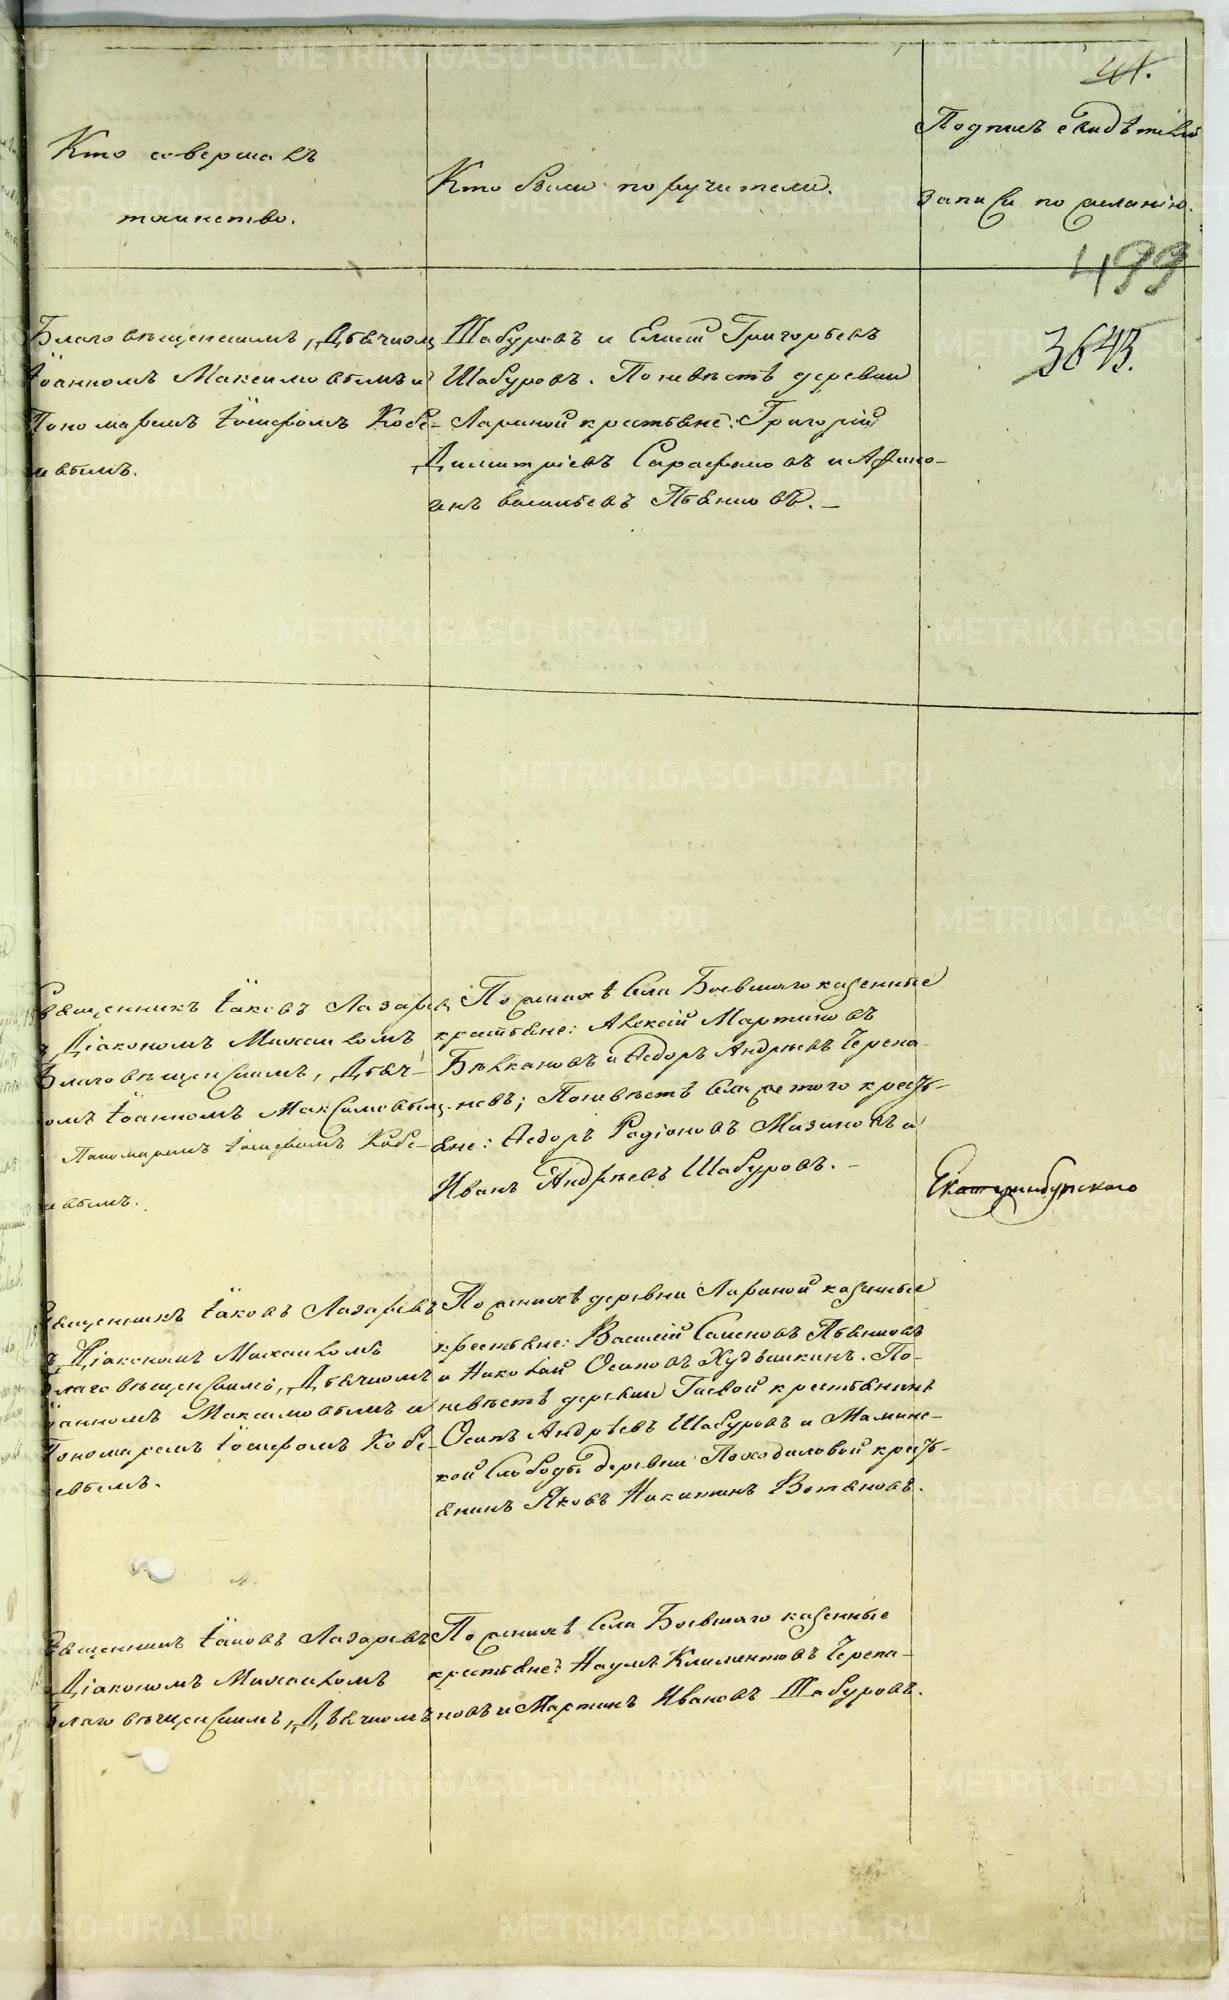 41.
Кто совершалъ
таинство.
Кто были поручители.
Подпись свидѣтелей
записи по желанію.
499
3643.
Благовѣщенскимъ, Дьячкомъ
Іоанномъ Максимовымъ и
Пономаремъ Іосифомъ Кобе-
левымъ.
Шабуровъ и Елисей Григорьевъ
Шабуровъ. По невѣстѣ деревни
Лариной крестьяне: Григорій
Димитріевъ Сарафановъ и Афино-
генъ Васильевъ Пьянковъ.
Священникъ Іаковъ Лазаревъ
съ Діакономъ Михаиломъ
Благовѣщенскимъ, Дьяч-
комъ Іоанномъ Максимовымъ
Пономаремъ Іосифомъ Кобе-
левымъ.
По женихѣ села Боевшаго казенные
крестьяне: Алексѣй Мартиновъ
и Ѳедоръ Андреевъ Черепа-
новъ; По невѣстѣ села этого кресть-
яне: Ѳедоръ Родіоновъ Мизиновъ и
Иванъ Андреевъ Шабуровъ.
Екатеринбургскаго
Священникъ Іаковъ Лазаревъ
съ Діакономъ Михаиломъ
Благовѣщенскимъ, Дьячкомъ
Іоанномъ Максимовымъ и
Пономаремъ Іосифомъ Кобе-
левымъ.
По женихѣ деревни Лариной казенные
крестьяне: Василій Семеновъ Пьянковъ
и Николай Осиповъ Худышкинъ. По
невѣстѣ деревни Гаевой крестьянинъ
Осипъ Андреевъ Шабуровъ и Маминс-
кой Слободы деревни Походиловой кресть-
янинъ Яковъ Никитинъ Вотяковъ.
Священникъ Іаковъ Лазаревъ
Діакономъ Михаиломъ
Благовѣщенскимъ, Дьячкомъ
По женихѣ села Боевшаго казенные
крестьяне: Наумъ Климентовъ Черепа-
новъ и Мартинъ Ивановъ Шабуровъ.